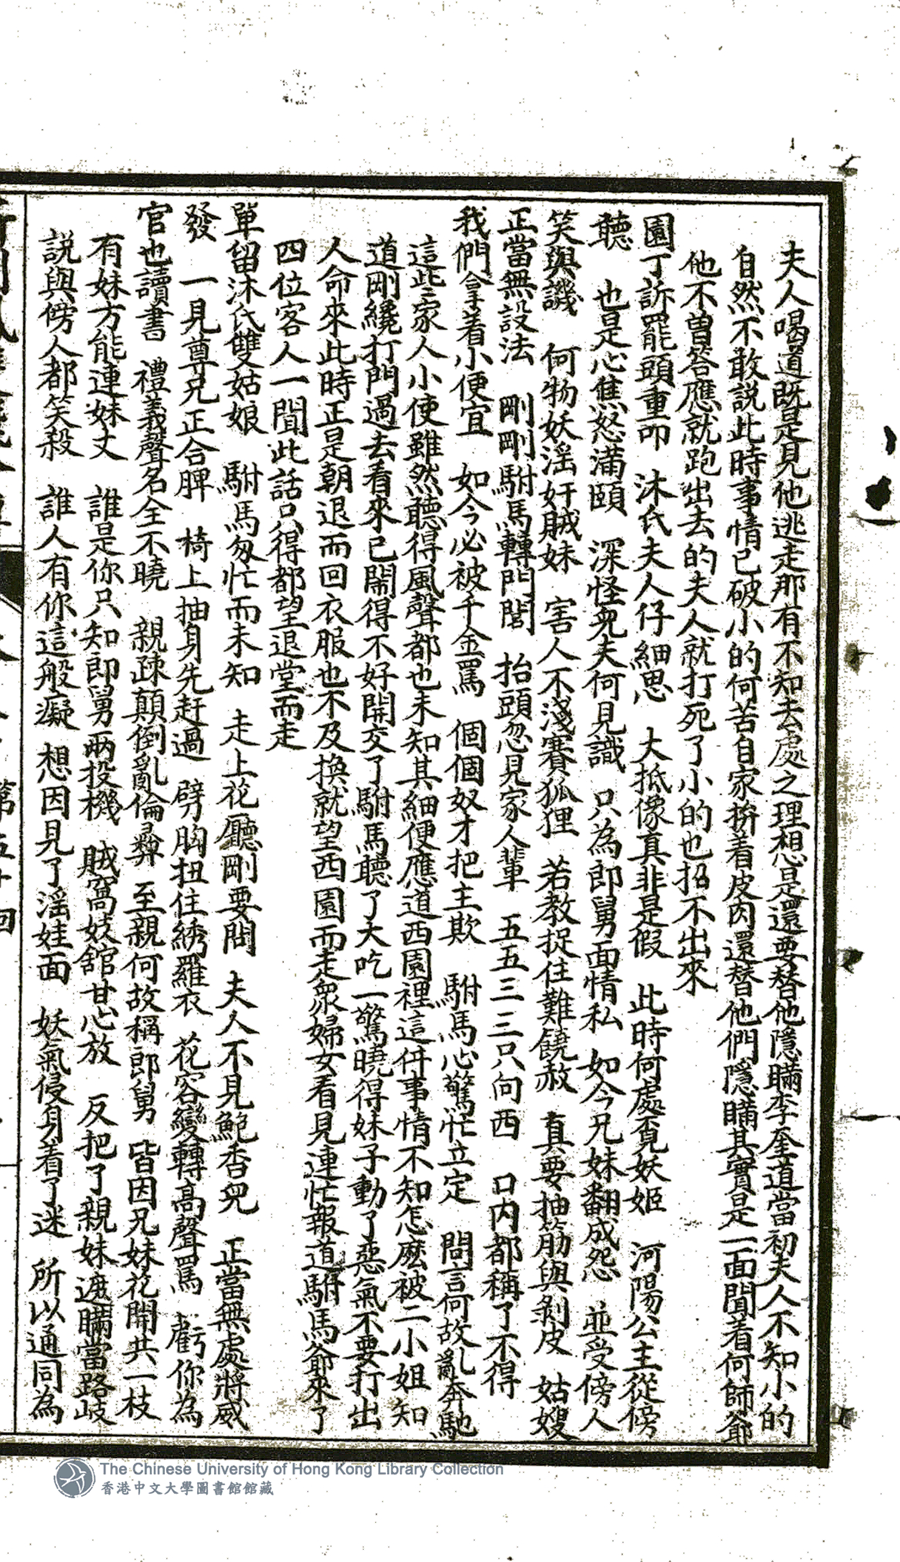 夫人喝道既是見他逃走那有不知去處之理想是還要替他隱瞞李奎道當初夫人不知小的
自然不敢説此時事情已破小的何苦自家拚着皮肉還替他們隱瞞其實是一面聞着何師爺
他不曾答應就跑出去的夫人就打死了小的也招不出來
園丁訴罷頭重叩　沐氏夫人仔細思　大抵像真非是假　此時何處覓妖姬　河陽公主從傍
聽　也是心焦怒滿頤　深怪兒夫何見識　只為郎舅面情私　如今兄妹翻成怨　並受傍人
笑與譏　何物妖滛奸賊妹　害人不淺賽狐狸　若教捉住難饒赦　真要抽筋與剝皮　姑嫂
正當無設法　剛剛駙馬轉門閭　抬頭忽見家人輩　五五三三只向西　口内都稱了不得
我們拿着小便宜　如今必被千金罵　個個奴才把主欺　駙馬心驚忙立定　問言何故亂奔馳
這些家人小使雖然聽得風聲都也未知其細便應道西園裡這件事情不知怎麽被二小姐知
道剛纔打門過去看來已鬧得不好開交了駙馬聽了大吃一驚曉得妹子動了惡氣不要打出
人命來此時正是朝退而回衣服也不及換就望西園而走衆婦女看見連忙報道駙馬爺來了
四位客人一聞此話只得都望退堂而走
單留沐氏雙姑娘　駙馬匆忙而未知　走上花廳剛要問　夫人不見鮑香兒　正當無處將威
發　一見尊兄正合脾　椅上抽身先赶過　劈胸扭住綉羅衣　花容變轉高聲罵　虧你為
官也讀書　禮義聲名全不曉　親疎顛倒亂倫彝　至親何故稱郎舅　皆因兄妹花開共一枝
有妹方能連妹丈　誰是你只知郎舅兩投機　賊窩妓舘甘心放　反把了親妹遮瞞當路歧
説與傍人都笑殺　誰人有你這般癡　想因見了滛娃面　妖氣侵身着了迷　所以通同為